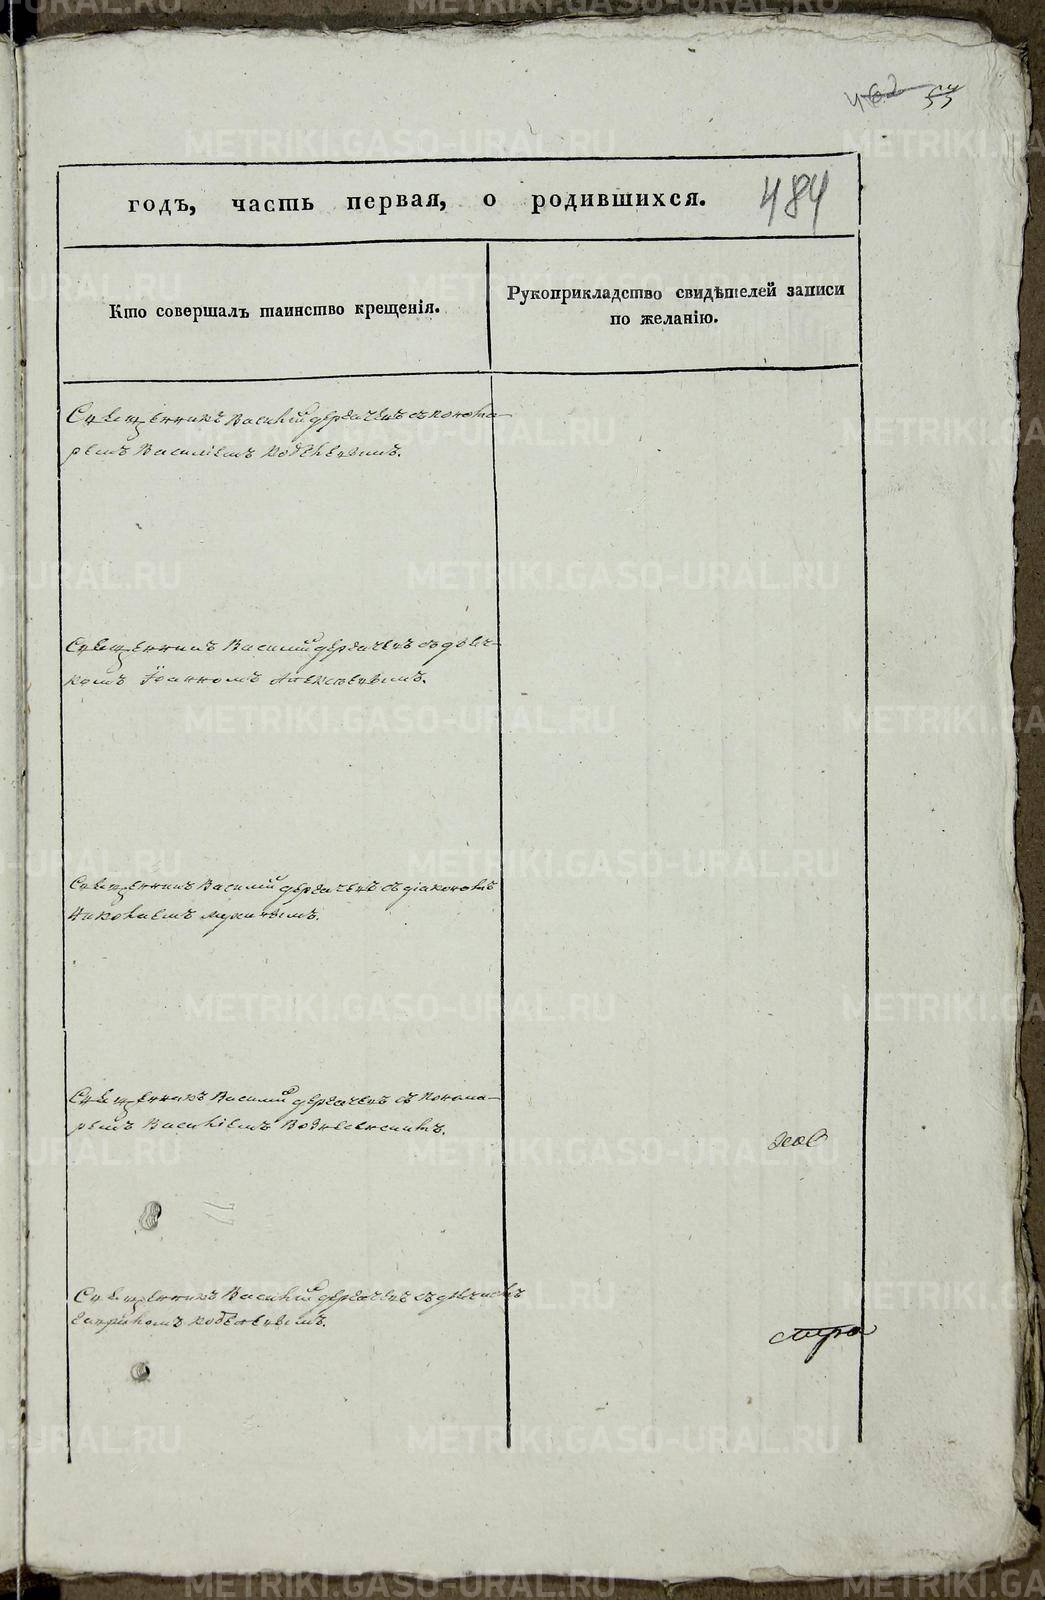 484
годъ, часть первая, о родившихся.
Кто совершалъ таинство крещенія.
Рукоприкладство свидѣтелей записи
по желанію.
Священникъ Василий дергачевъ съ понома-
ремъ Василіемъ
Священникъ Василий дергачевъ съ дьяч-
комъ Іоанномъ Алексѣевымъ.
Священникъ Василий дергачевъ съ діакономъ
Николаемъ
Священникъ Василий дергачевъ съ понома-
ремъ Василіемъ
Священникъ Василий дергачевъ съ дьячкомъ
METRIKI.GASO-URAL.RU